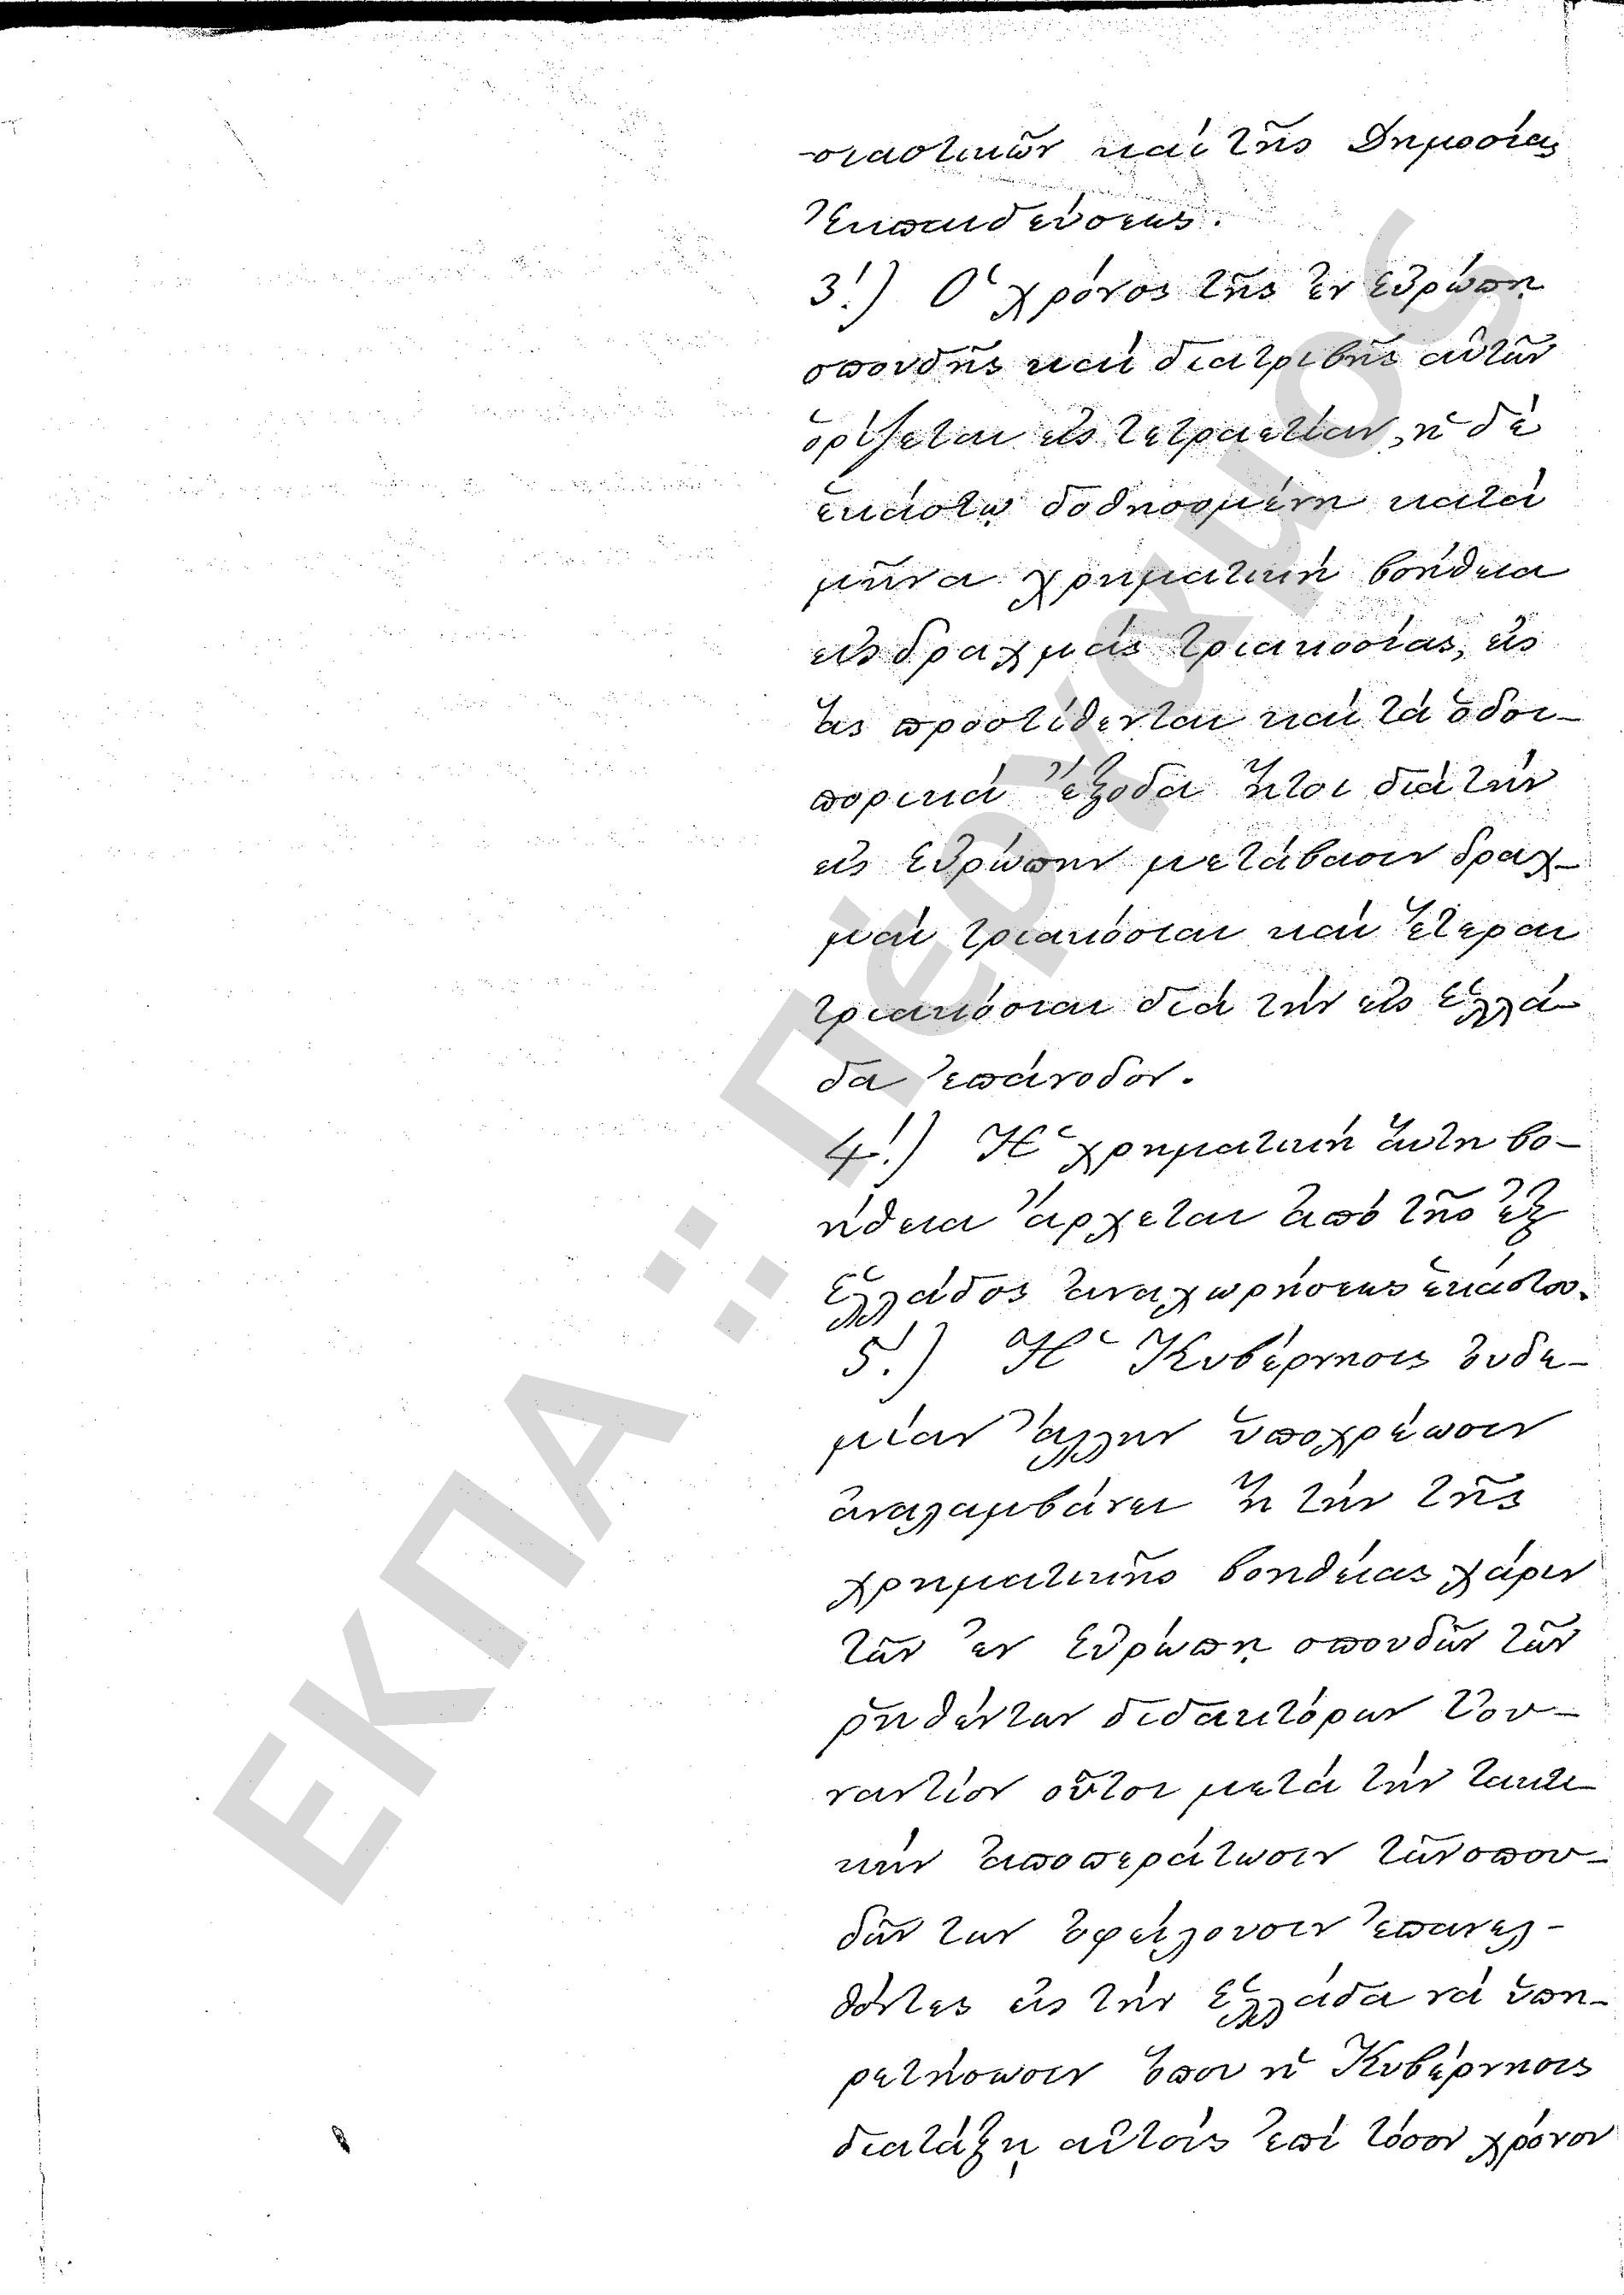 -σιαστικῶν καί τῆς Δημοσίας
Ἐκπαιδεύσεως.
3!) Ὁ χρόνος τῆς ἐν Εὐρώπῃ
σπουδῆς καί διατριβῆς αὐτῶν
ὁρίζεται εἰς τετραετίαν, ἡ δέ
ἑκάστῳ δοθησομένη κατά
μῆνα χρηματική βοήθεια
εἰς δραχμάς τριακοσίας, εἰς
ἅς προστίθενται καί τά ὁδοι-
πορικά ἔξοδα ἤτοι διά τήν
εἰς Εὐρώπην μετάβασιν δραχ-
μαί τριακόσιαι καί ἕτεραι
τριακόσιαι διά τήν εἰς Ἑλλά-
δα ἐπάνοδον.
4!) Ἡ χρηματική αὕτη βο-
ήθεια ἄρχεται ἀπό τῆς ἐξ
Ἑλλάδος ἀναχωρήσεως ἑκάστου.
5!) Ἡ Κυβέρνησις οὐδε-
μίαν ἄλλην ὑποχρέωσιν
ἀναλαμβάνει ἤ τήν τῆς
χρηματικῆς βοηθείας χάριν
τῶν ἐν Εὐρώπῃ σπουδῶν τῶν
ῥηθέντων διδακτόρων τοὐ-
ναντίον οὗτοι μετά τήν τακτι-
κήν ἀποπεράτωσιν τῶν σπου-
δῶν των ὀφείλουσιν ἐπανελ-
θόντες εἰς τήν Ἑλλάδα νά ὑπη-
ρετήσωσιν ὅπου ἡ Κυβέρνησις
διατάξῃ αὐτοῖς ἐπί τόσον χρόνον
ΕΚΠΑ :: Πέργαμος